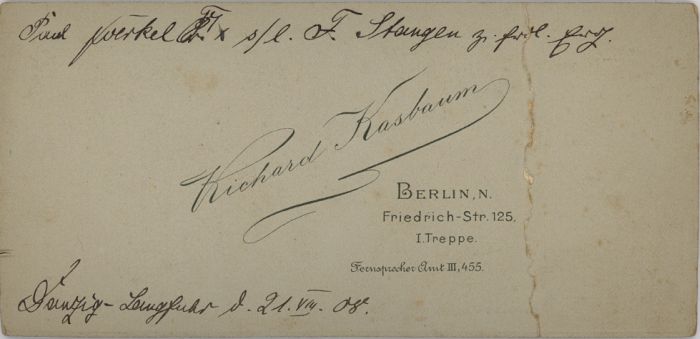 Paul s/l. F. Stangen z. frdl. Erg.
Richard Kasbaum
BERLIN, N.
Friedrich-Str. 125,
I. Treppe.
Fernsprecher Amt III, 455.
Danzig-Langfuhr d. 21. VIII. 08.